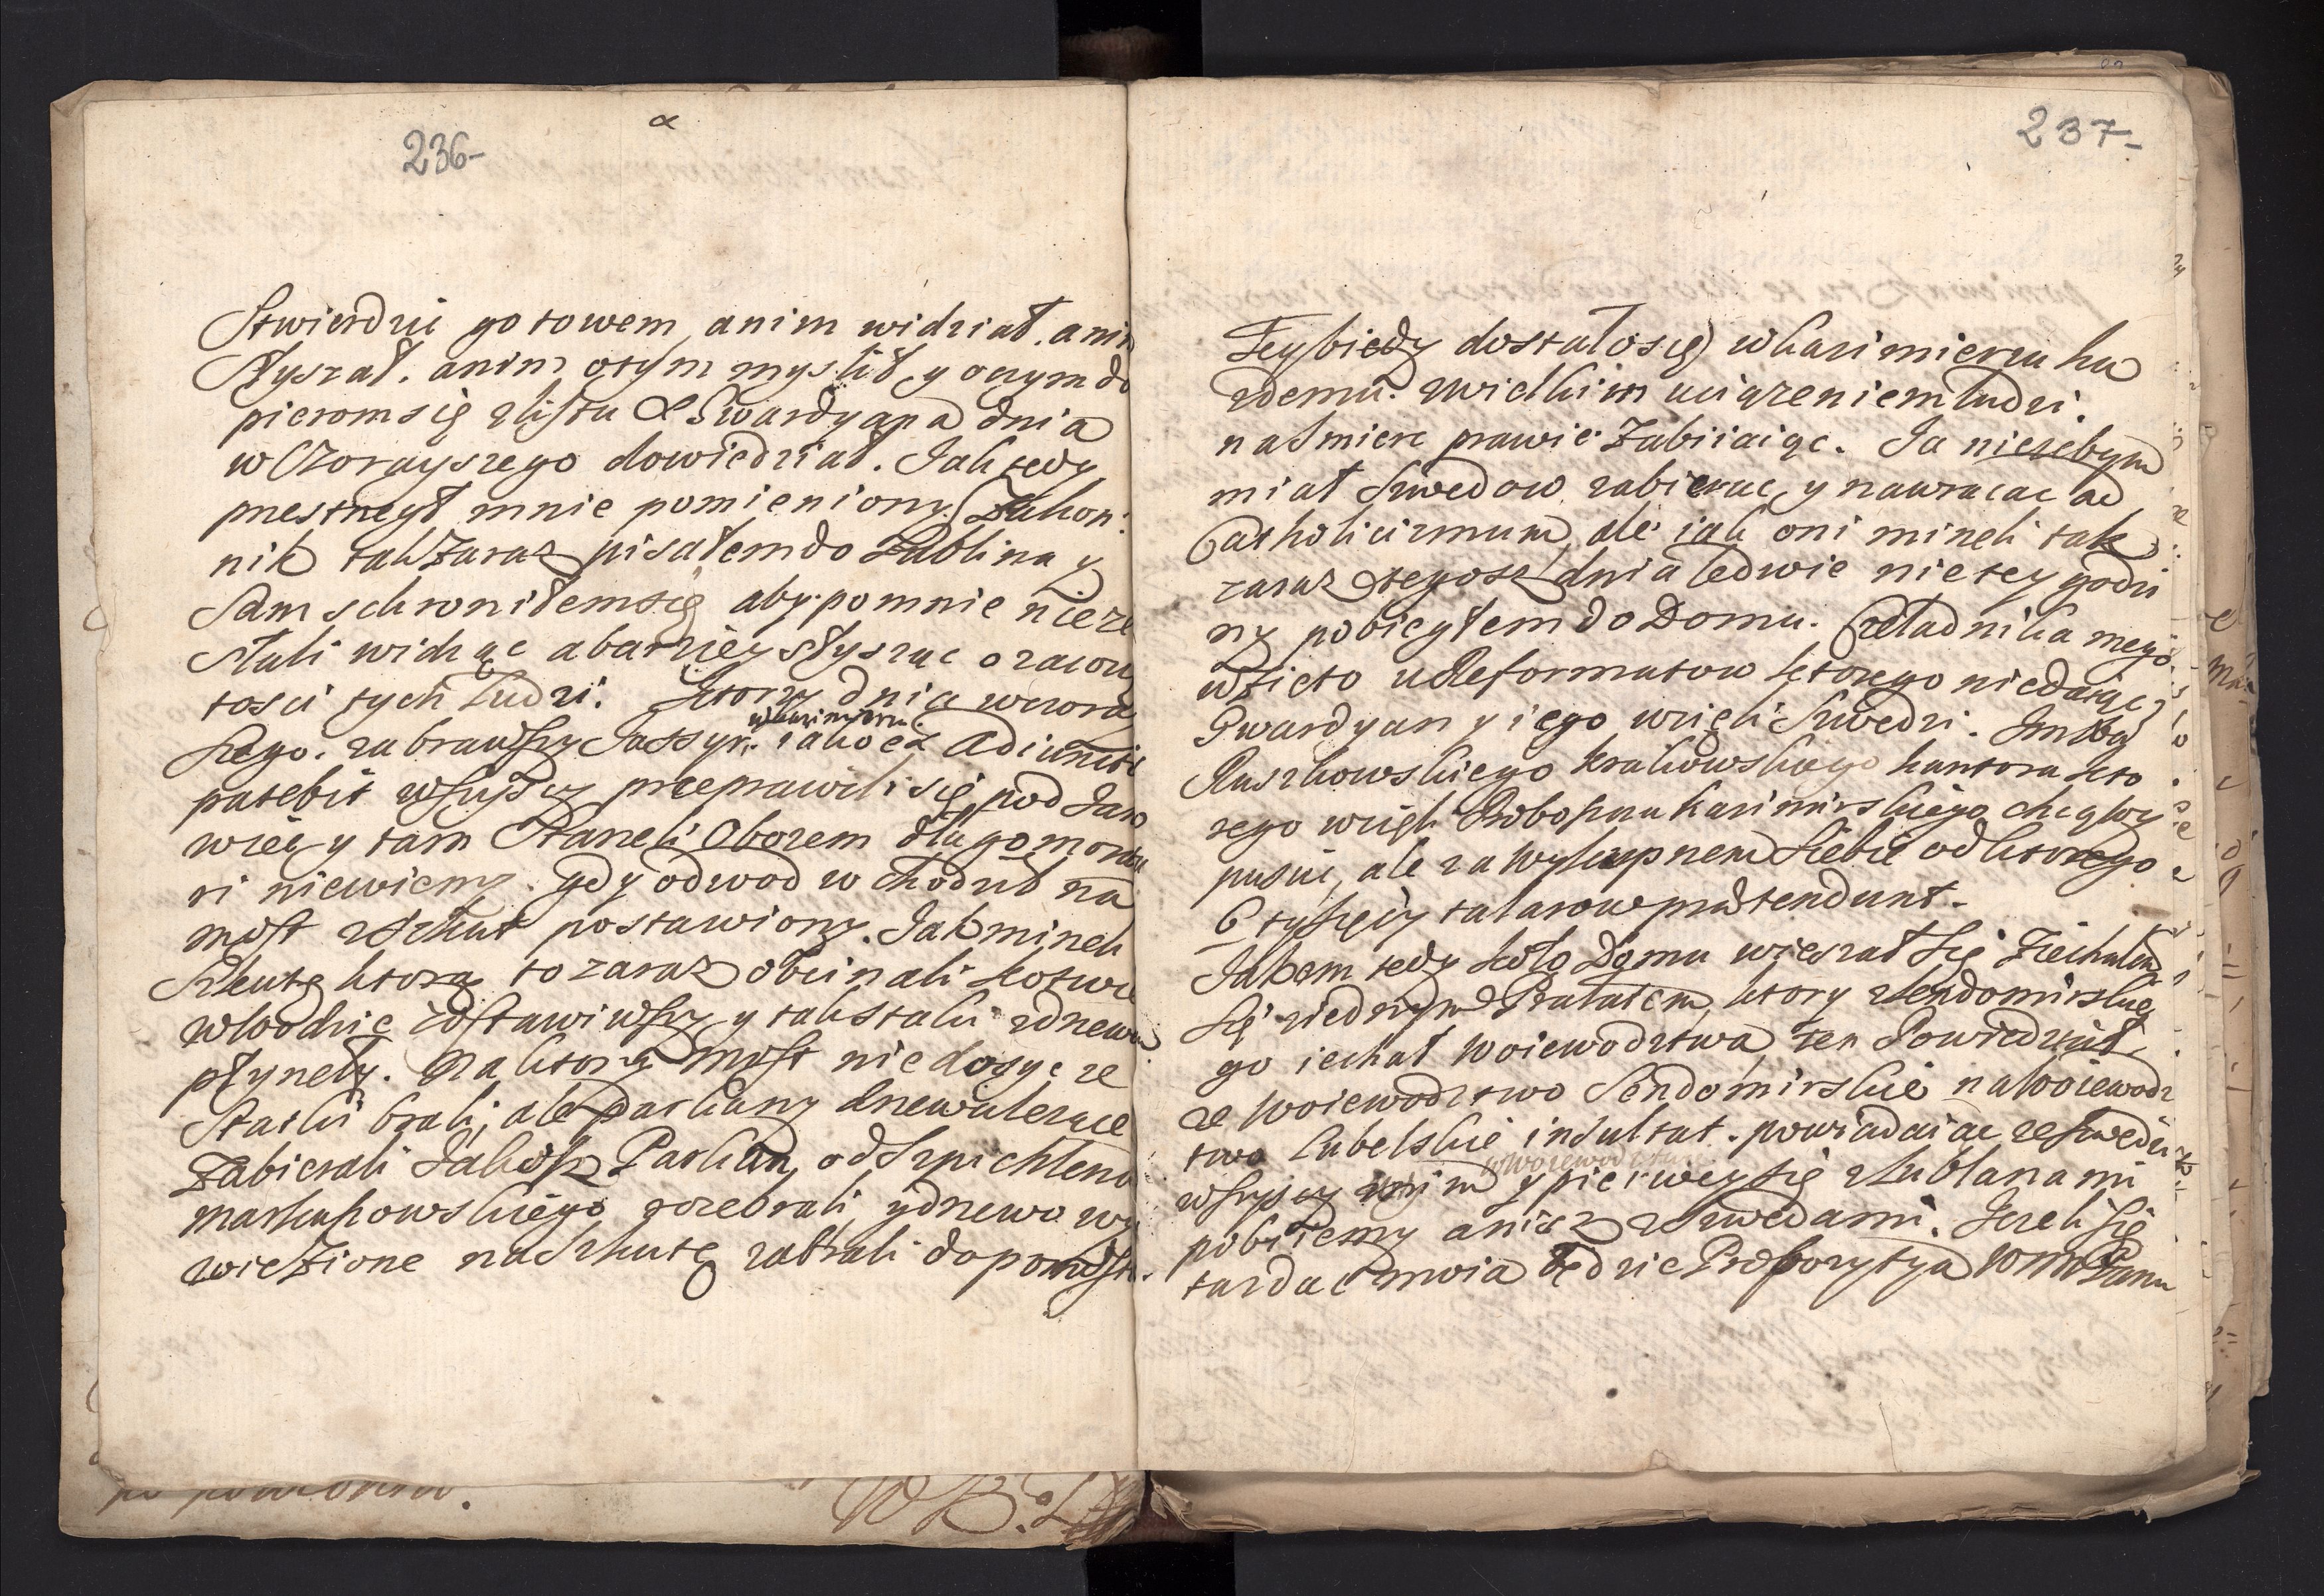 236-
α
Stwierdzić gotowem, anim widział. anim
słyszał. anim otym myslił, y onym do
pieromsię zlistu X Gwardyana dnia
wczorayszego dowiedział. Jak tedy
przestrzegł mnie pomieniony Zakon:
nik tak zaraz pisałem do Lublina y
Sam schroniłemsię aby pomnie nieze
słali widząc abarziey słysząc o zawzię
tosci tych Ludzi. Ktorzy dnia wczoray
szego. zabrawszy Sassyn. iakoez Adiuncti
wkazimierzu
patebit wszyscy przeprawili się pod Jano
wiec y tam Staneli Obozem długo morze
zi niewiemy. gdy odwod w chodził na
most zSzkut postawiony. Jak mineli
Szkutę ktorą to zaraz obcinali kotwic
włoodzie zostawiwszy y tak statki zdnewa
płyneły. Na ktory most nie dosyc ze
Statki brali, ale Parkany drzewa lezące
Zabierali Jakosz Parkan od Szpichlerza
markuszowskiego rozebrali ydrzewo wy
wiezione naSzkutę zabrali dopomostu.
po
237-
Teybiedy dostałosię wkazimierzu ka
zdemu. zwielkim uciązeniem ludzi.
naSmierc prawie Zabiiaiąc. Ja niezebym
miał Szwedow zabierac, y nawracac ad
Catholicizmum, ale iak oni mineli tak
zaraz tegosz dnia ledwie nie tey godzi
ny pobiegłem do Domu. Czeladnika mego
wzieto uReformatow ktorego niedaiąc
Gwardyan y iego wzieli Szwedzi. Jmsci
Ruszkowskiego krakowskiego kantora kto
rego wzięli Proboszcza kazimirskiego chcą wy
puscic, ale za wykupnem Siebie odktorego
6 tysięcy talarow prætendunt.
Jakem tedy koło Domu wieszał się Ziechałem
Się ziednym Prałatem, ktory zSendomirskie
go iechał Woiewodztwa, ten Powiedział
ze Woiewodztwo Sendomirskie na Woiewodz
two Lubelskie insultat. powiadaiąc ze Szwedzi
wWoiewodztwie
wszyscy y pierwey się zLublanami
pobiiemy anisz zSzwedami. Jezeli się
tazdac mwia będzie Propozytya WmPanu